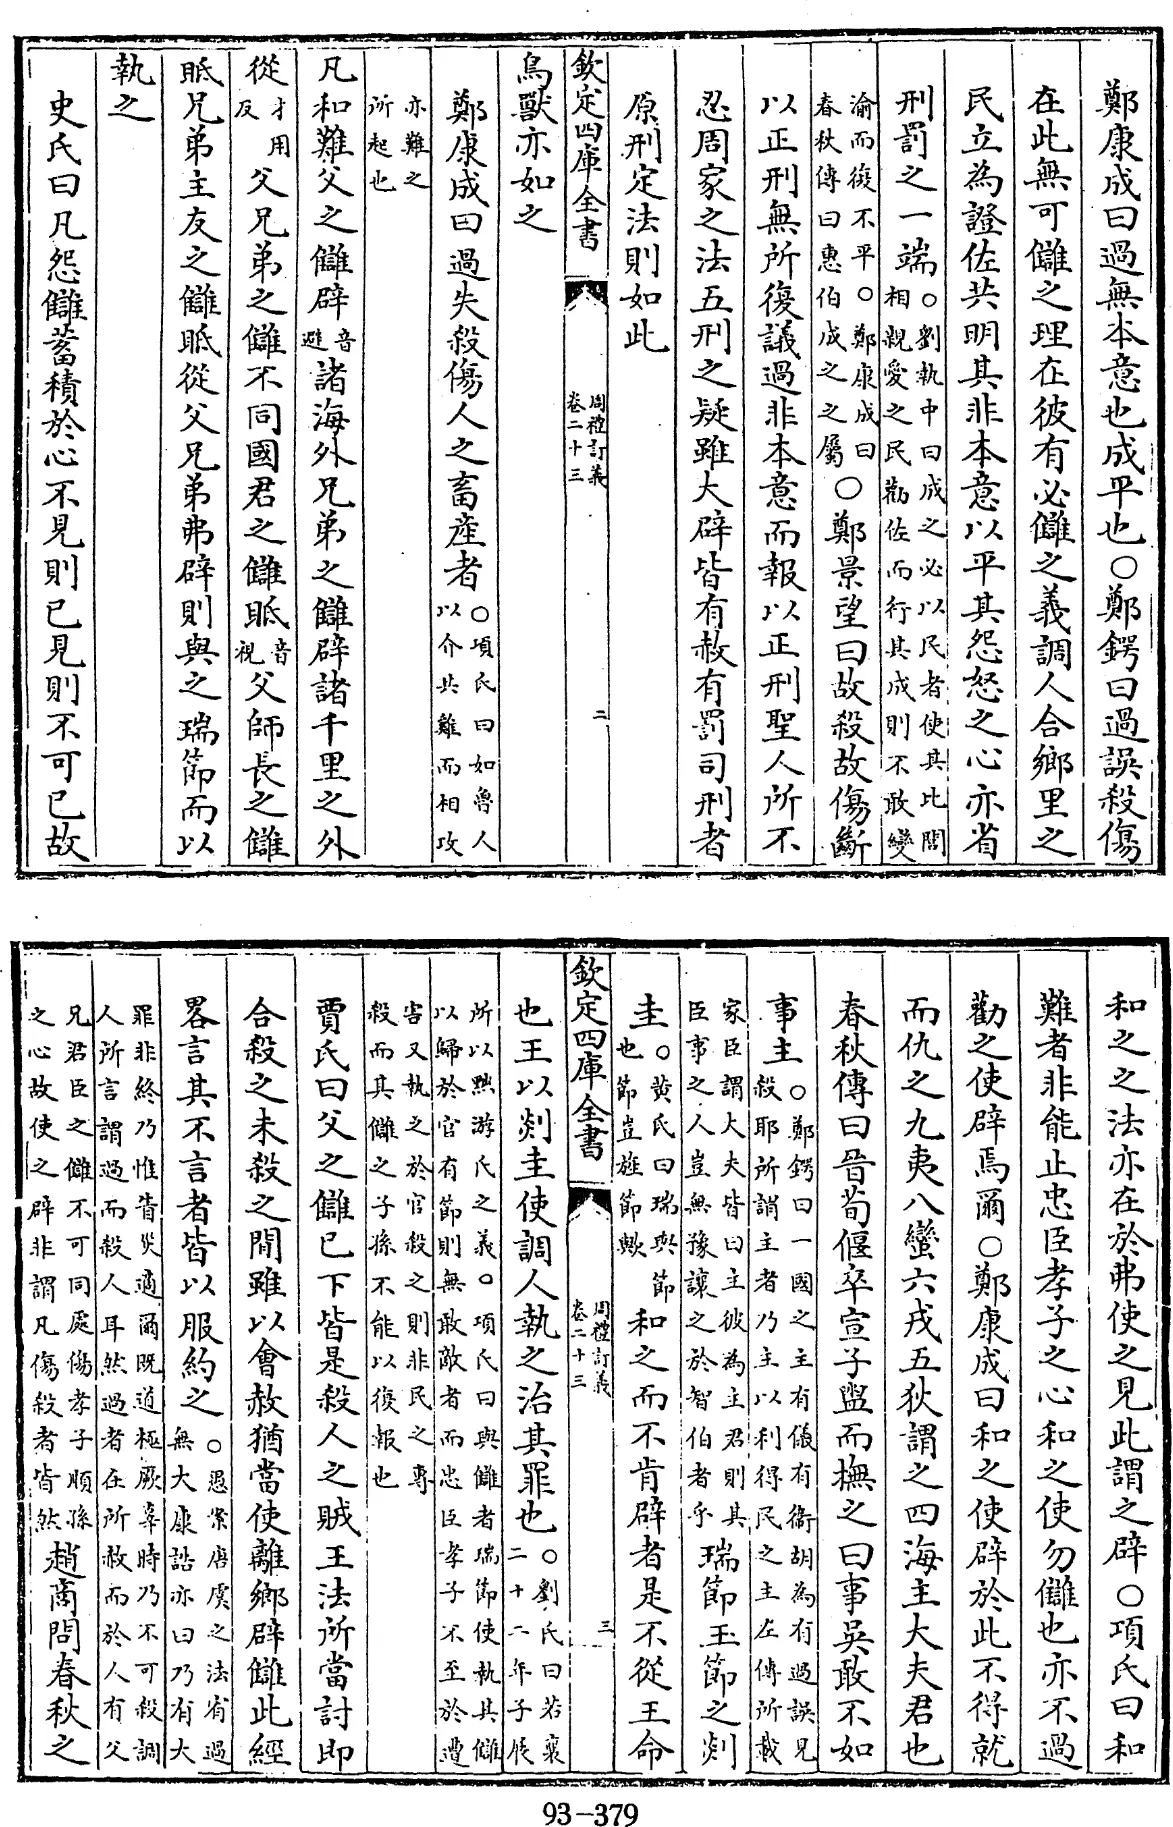 鄭康成曰過無本意也成平也○鄭鍔曰過誤殺傷
在此無可讎之理在彼有必讎之義調人合鄉里之
民立為證佐共明其非本意以平其怨怒之心亦省
刑罰之一端○劉執中曰成之必以民者使其比閭
相親愛之民勸佐而行其成則不敢變
渝而復不平○鄭康成曰
春秋傳曰惠伯成之之屬○鄭景望曰故殺故傷斷
以正刑無所復議過非本意而報以正刑聖人所不
忍周家之法五刑之疑雖大辟皆有赦有罰司刑者
原刑定法則如此
欽定四庫全書
周禮訂義
卷二十三
二
鳥獸亦如之
鄭康成曰過失殺傷人之畜產者○項氏曰如魯人
以介其雞而相攻
亦難之
所起也
凡和難父之讎辟音
避諸海外兄弟之讎辟諸千里之外
從才用
反父兄弟之讎不同國君之讎眡音
視父師長之讎
眡兄弟主友之讎眡從父兄弟弗辟則與之瑞節而以
執之
史氏曰凡怨讎蓄積於心不見則已見則不可已故
和之之法亦在於弗使之見此謂之辟○項氏曰和
難者非能止忠臣孝子之心和之使勿讎也亦不過
勸之使辟焉爾○鄭康成曰和之使辟於此不得就
而仇之九夷八蠻六戎五狄謂之四海主大夫君也
春秋傳曰晉荀偃卒宣子盥而撫之曰事吳敢不如
事主○鄭鍔曰一國之主有儀有衛胡為有過誤見
殺耶所謂主者乃主以利得民之主左傳所載
家臣謂大夫皆曰主彼為主君則其
臣事之人豈無豫讓之於智伯者乎瑞節玉節之剡
圭○黃氏曰瑞與節
也節豈旌節歟和之而不肯辟者是不從王命
也王以剡圭使調人執之治其罪也○劉氏曰若襄
二十二年子展
所以黜游氏之義○項氏曰與讎者瑞節使執其讎
以歸於官有節則無敢敵者而忠臣孝子不至於遭
害又執之於官殺之則非民之專
殺而其讎之子孫不能以復報也
賈氏曰父之讎已下皆是殺人之賊王法所當討即
合殺之未殺之間雖以會赦猶當使離鄉辟讎此經
畧言其不言者皆以服約之○愚案唐虞之法宥過
無大康誥亦曰乃有大
罪非終乃惟眚災適爾既道極厥辜時乃不可殺調
人所言謂過而殺人耳然過者在所赦而於人有父
兄君臣之讎不可同處傷孝子順孫
之心故使之辟非謂凡傷殺者皆然趙商問春秋之
欽定四庫全書
周禮訂義
卷二十三
三
93-379